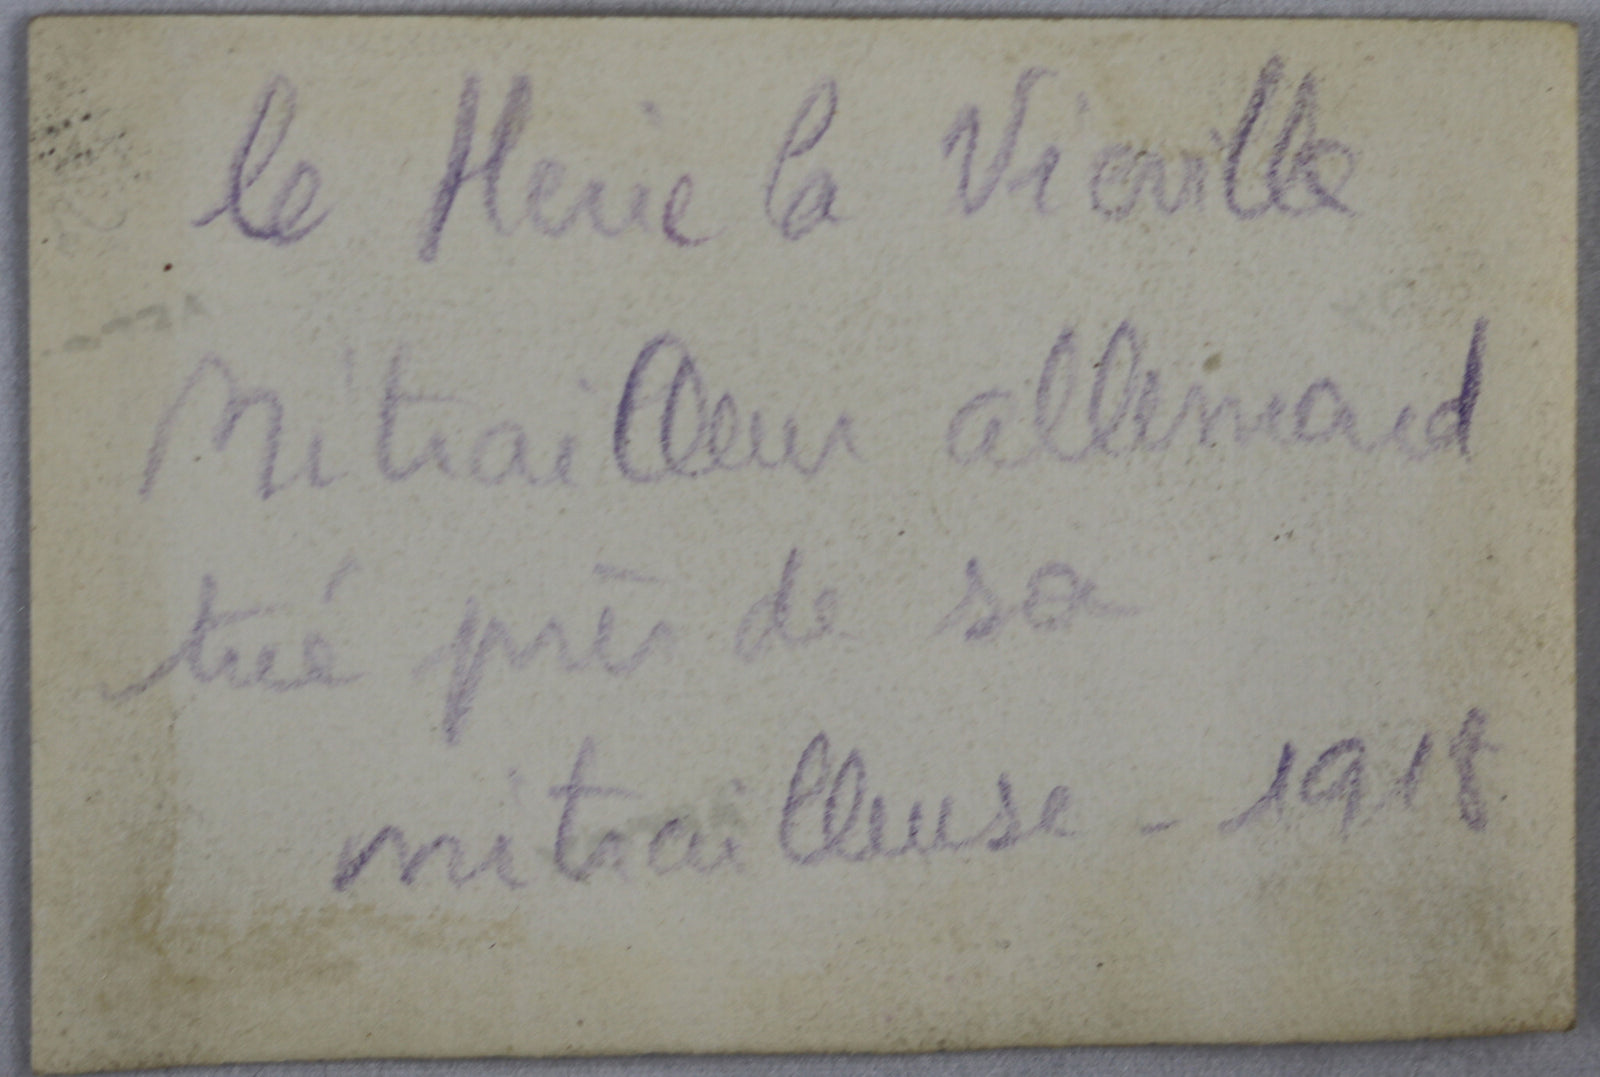 le Herie la Vieville
Mitrailleur allemand
tué près de sa
mitrailleuse - 1918